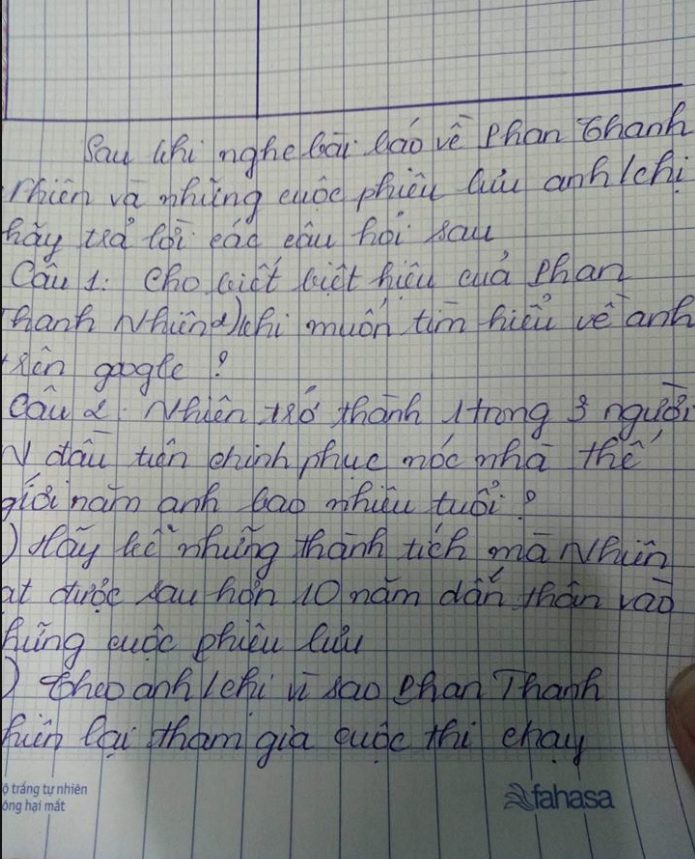 Sau khi nghe bài báo về Phan Thanh
Nhiên và những cuộc phiêu lưu anh/chị
hãy trả lời các câu hỏi sau
Câu 1: Cho biết biệt hiệu của Phan
Thanh Nhiên khi muốn tìm hiểu về anh
trên google ?
Câu 2: Nhiên trở thành 1 trong 3 người
N đầu tiên chinh phục nóc nhà thế
giới năm anh bao nhiêu tuổi ?
) Hãy kể những thành tích mà Nhiên
at được sau hơn 10 năm dấn thân vào
hững cuộc phiêu lưu
) Theo anh/chị vì sao Phan Thanh
hiên lại tham gia cuộc thi chạy
ộ trắng tự nhiên
ông hại mắt
fahasa